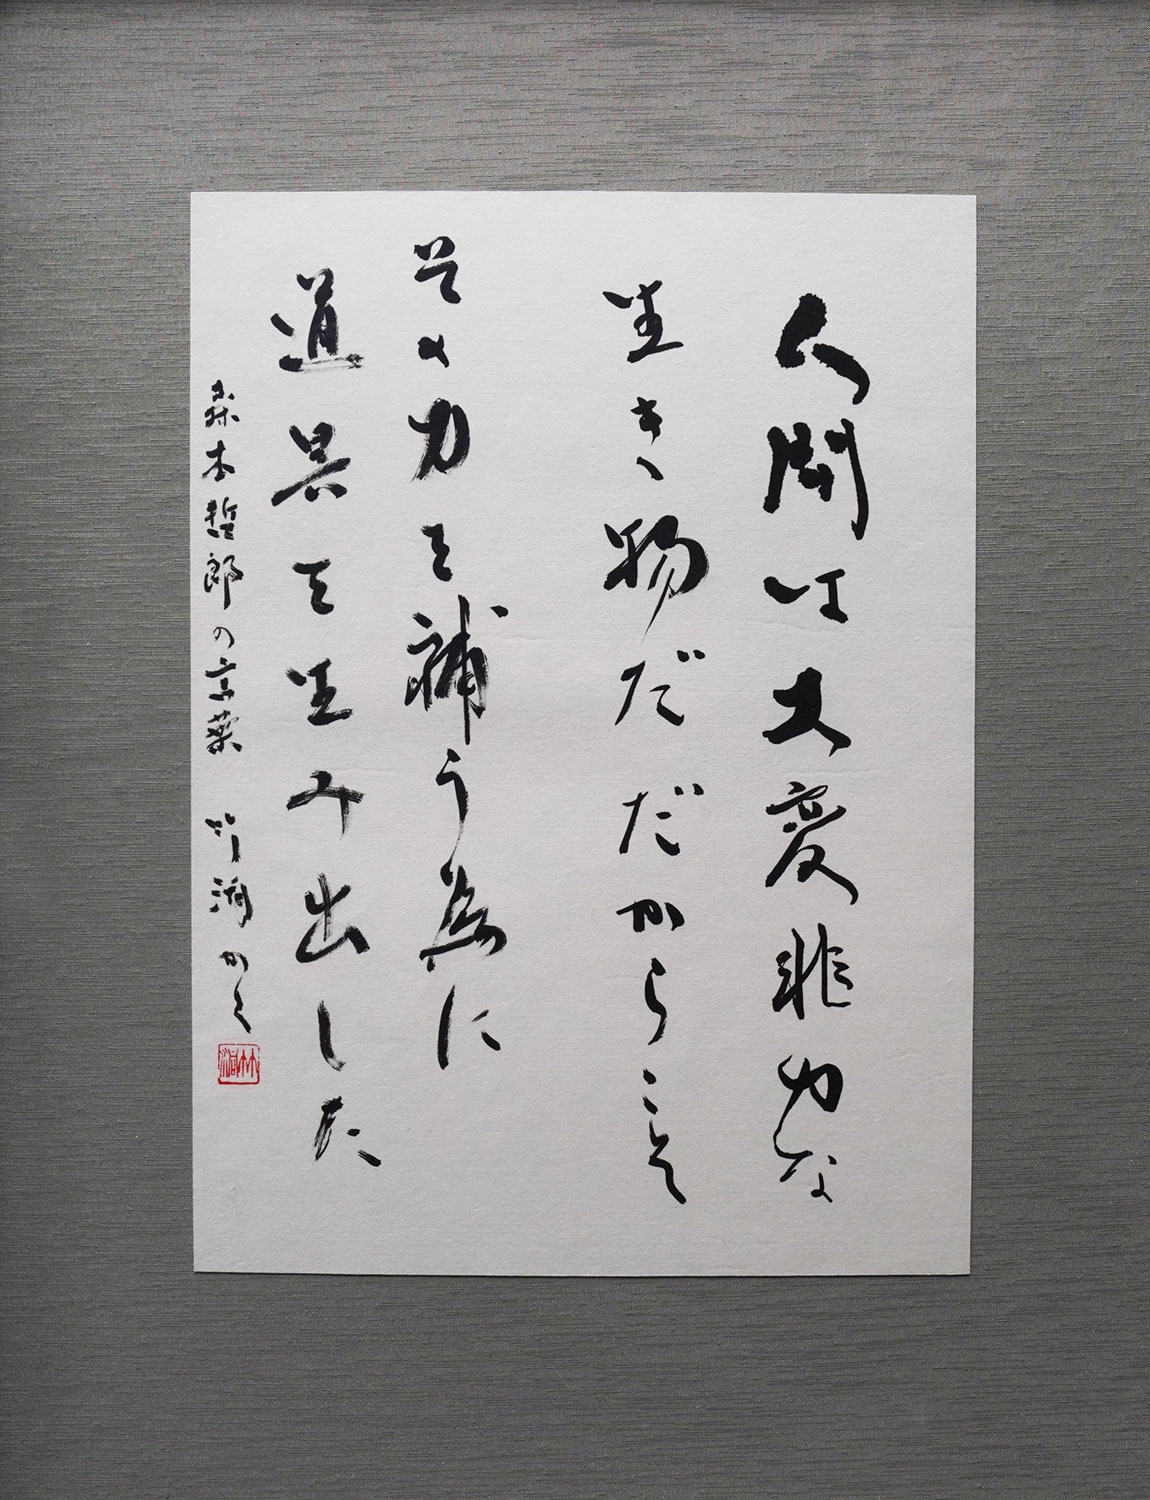 人間は大変非力な
生き物だだからこそ
その力を補う為に
道具を生み出した
森本哲郎の言葉 竹濤かく